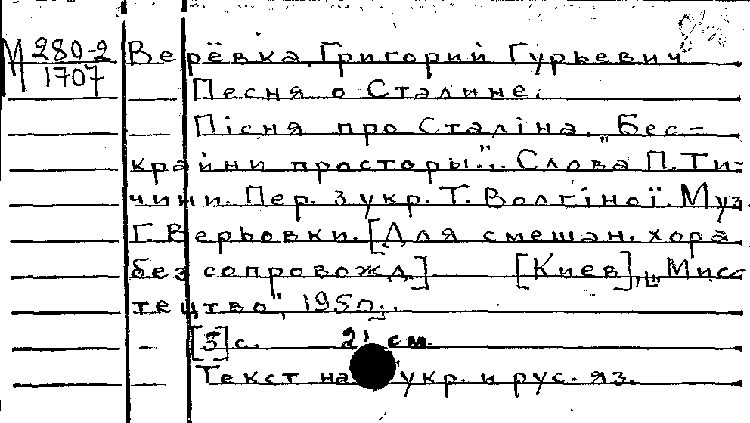 М 280-2
1707
Верёвка, Григорий Гурьевич
Песня о Сталине.
Пісня про Сталіна. „Бес-
крайни просторы...". Слова П. Ти-
чини. Пер. з укр. Т. Волгіної. Муз.
Г. Верьовки. [Для смешан. хора
без сопровожд.] [Киев], „Мис-
тецтво", 1950.
[3] с. 21 см.
Текст на укр. и рус. яз.